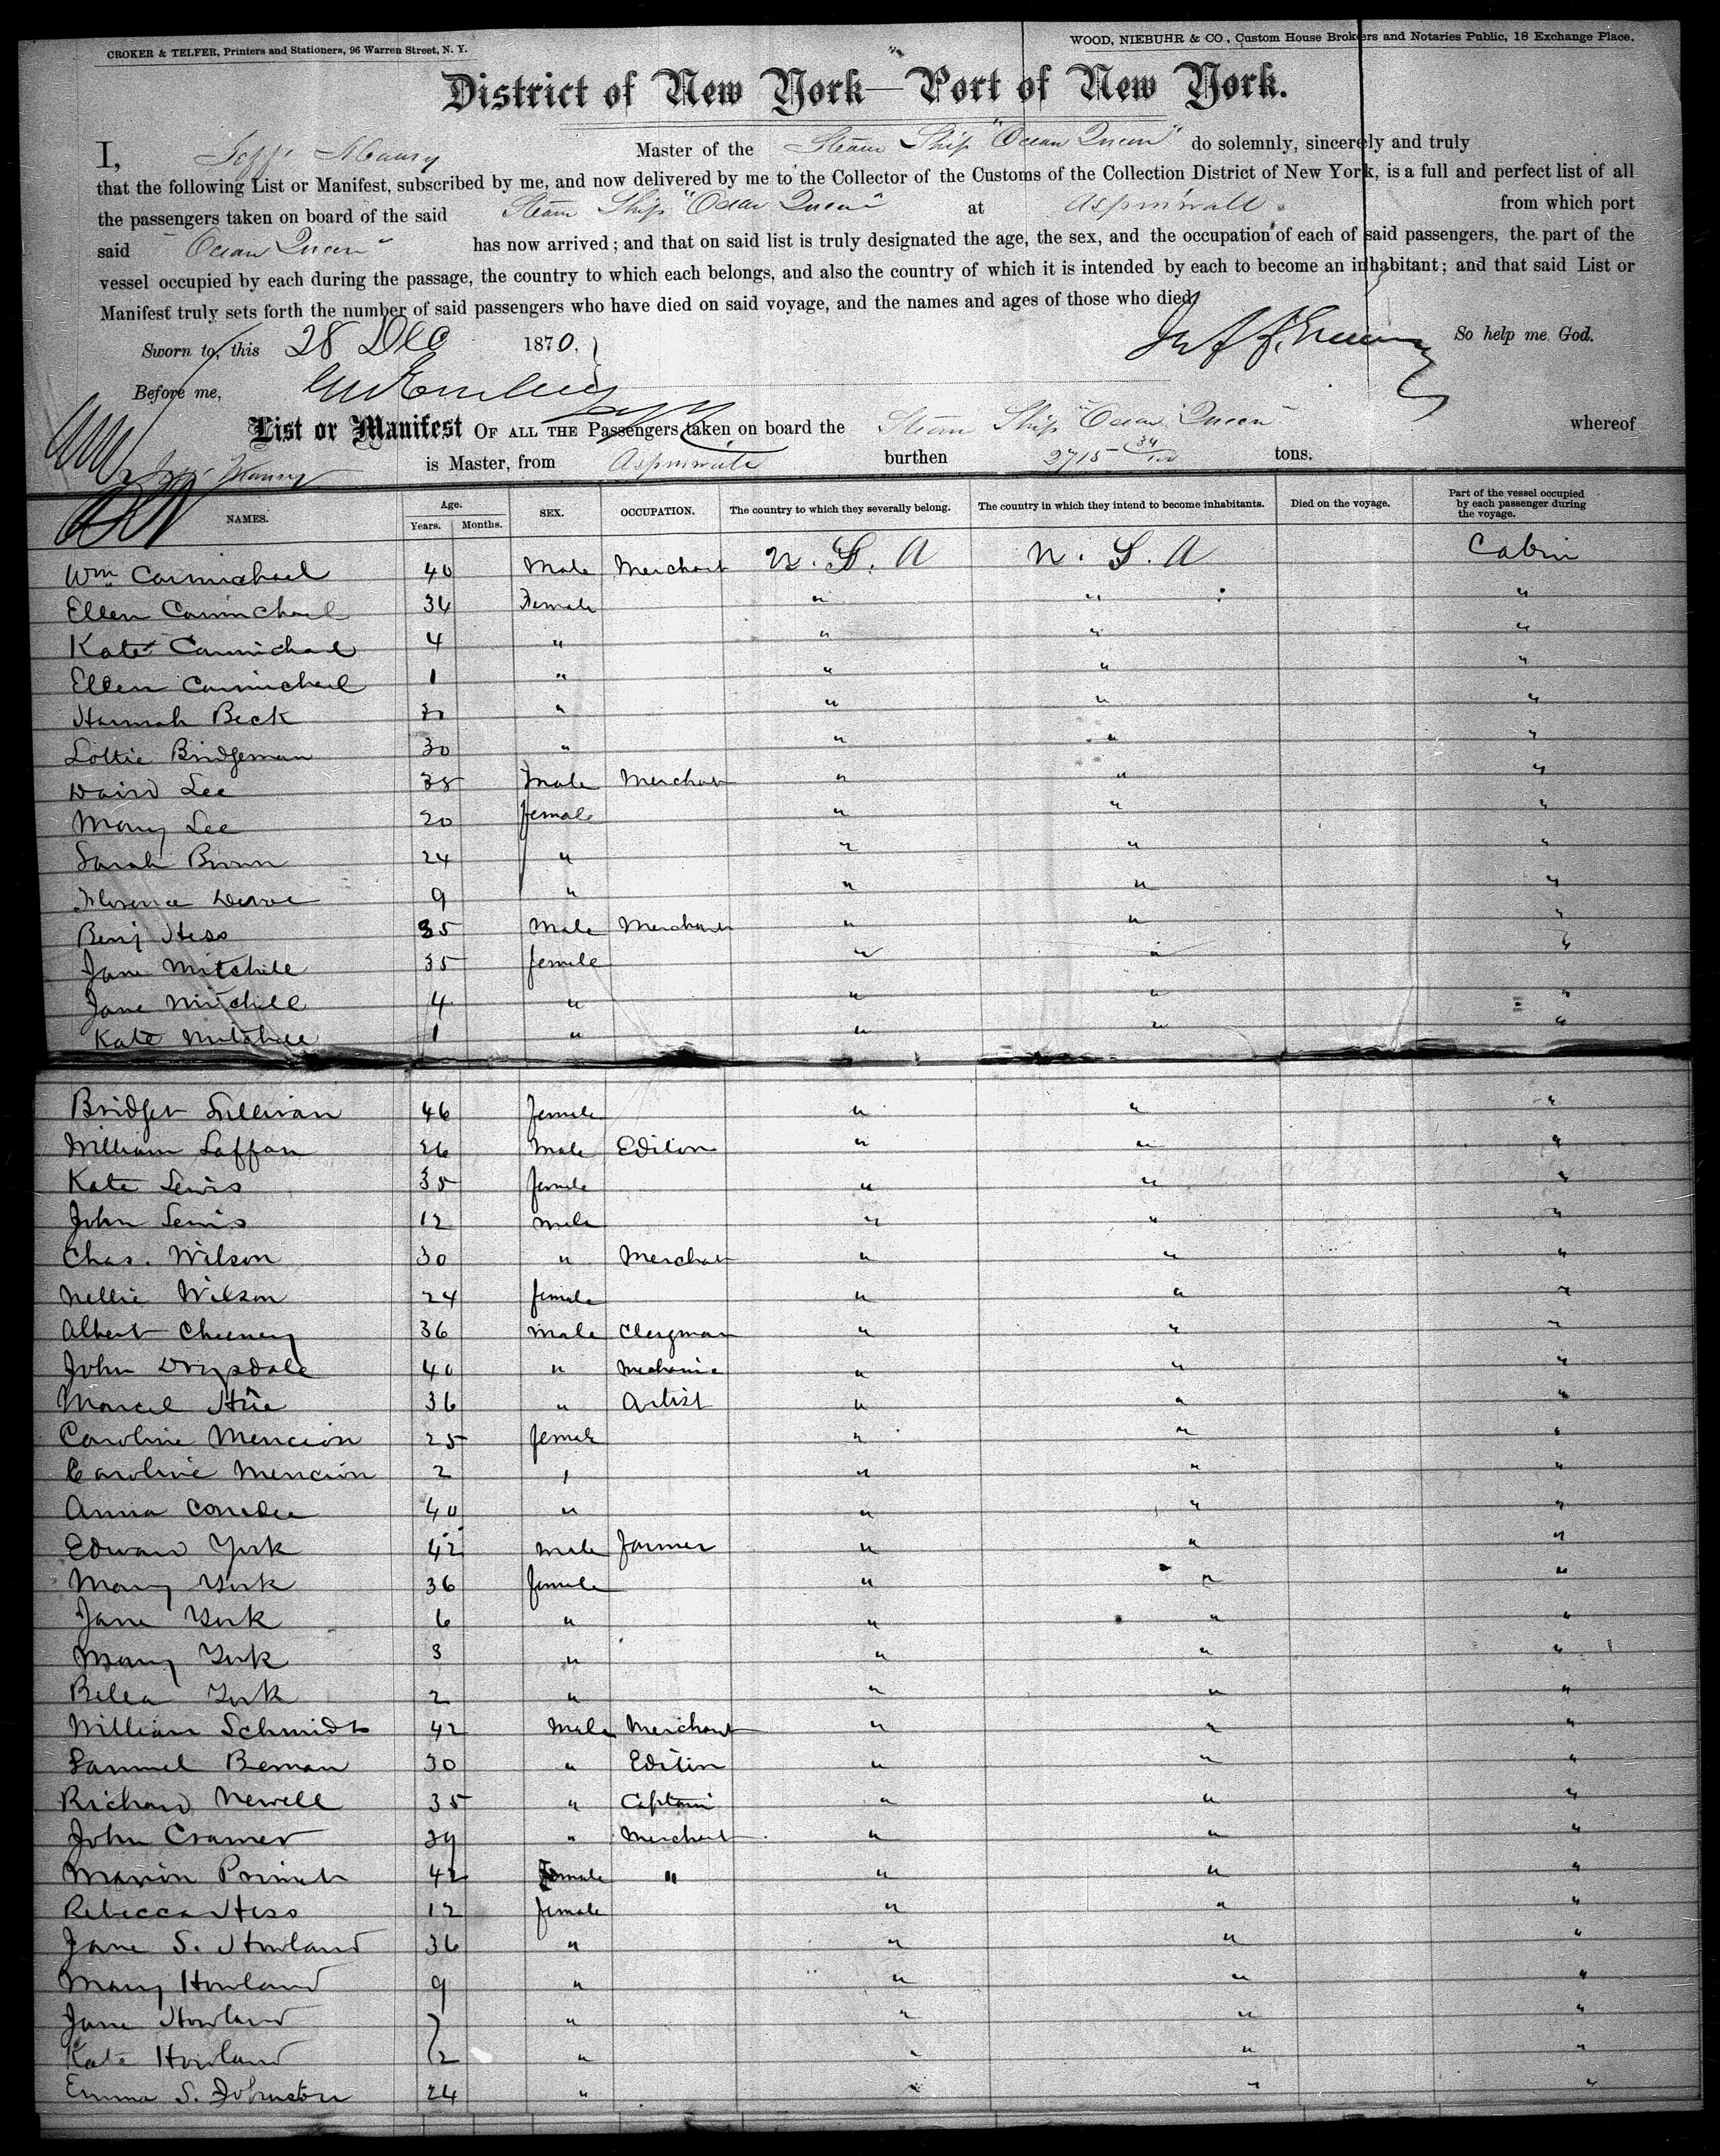 CROKER & TELFER, Printers and Stationers, 96 Warren Street, N. Y. WOOD, NIEBUHR & CO., Custom House Brokers and Notaries Public, 18 Exchange Place.
District of New York—Port of New York.
I, Master of the Steam Ship "Ocean Queen" do solemnly, sincerely and truly
that the following List or Manifest, subscribed by me, and now delivered by me to the Collector of the Customs of the Collection District of New York, is a full and perfect list of all
the passengers taken on board of the said Steam Ship "Ocean Queen" at Aspinwall from which port
said "Ocean Queen" has now arrived; and that on said list is truly designated the age, the sex, and the occupation of each of said passengers, the part of the
vessel occupied by each during the passage, the country to which each belongs, and also the country of which it is intended by each to become an inhabitant; and that said List or
Manifest truly sets forth the number of said passengers who have died on said voyage, and the names and ages of those who died.
Sworn to, this 28 Dec 1870. So help me God.
Before me,
List or Manifest OF ALL THE Passengers taken on board the Steam Ship "Ocean Queen" whereof
is Master, from Aspinwall burthen 2715 tons.
NAMES. Age. Years. Months. SEX. OCCUPATION. The country to which they severally belong. The country in which they intend to become inhabitants. Died on the voyage. Part of the vessel occupied by each passenger during the voyage.
Wm Carmichael 40 Male Merchant U. S. A U. S. A Cabin
Ellen Carmichael 34 Female " " "
Kate Carmichael 4 " " " "
Ellen Carmichael 1 " " " "
Hannah Beck " " " "
Lottie Bridgeman 30 " " " "
David Lee 38 Male Merchant " " "
Mary Lee 20 female " " "
Sarah 24 " " " "
Florence 9 " " " "
Benj Hess 35 Male Merchant " " "
Jane Mitchill 35 female " " "
Jane Mitchill 4 " " " "
Kate Mitchill 1 " " " "
Bridget Sullivan 46 female " " "
William Laffan 26 Male Editor " " "
Kate Lewis 35 female " " "
John Lewis 12 male " " "
Chas. Wilson 30 " Merchant " " "
Nellie Wilson 24 female " " "
Albert Cheeney 36 male Clergman " " "
John Drysdale 40 " Mechanic " " "
Marcel Hüe 36 " Artist " " "
Caroline Mencion 25 female " " "
Caroline Mencion 2 " " " "
Anna 40 " " " "
Edward York 42 male Farmer " " "
Mary York 36 female " " "
Jane York 6 " " " "
Mary York 3 " " " "
York 2 " " " "
William Schmidt 42 Male Merchant " " "
Samuel Beman 30 " Editor " " "
Richard Newell 35 " Captain " " "
John Cramer 39 " Merchant " " "
42 " " " "
Rebecca Hess 12 female " " "
Jane S. Howland 36 " " " "
Mary Howland 9 " " " "
Jane Howland " " " "
Kate Howland 2 " " " "
Emma S. Johnston 24 " " " "